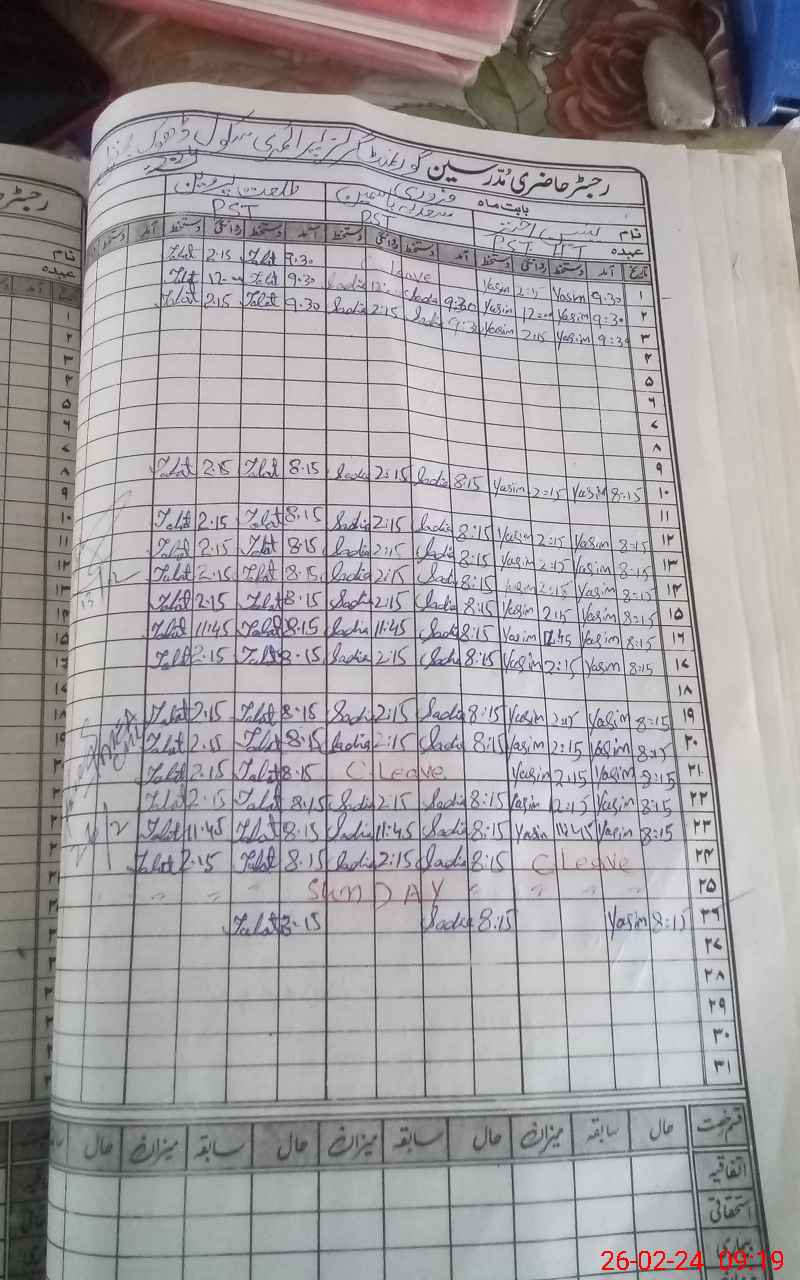 رجسٹر حاضری مدرسین گورنمنٹ گرلز پرائمری سکول ڈھوک
بابت ماہ فروری
نام
عہدہ PST HT PST PST
تاریخ آمد دستخط روانگی دستخط آمد دستخط روانگی دستخط آمد دستخط روانگی دستخط
۱ 9:30 Yasim 2:15 Yasim C Leave 9.30 Talat 2.15 Talat
۲ 9:30 Yasim 12:00 Yasim 9:30 Sadia 12:00 Sadia 9.30 Talat 12:00 Talat
۳ 9:30 Yasim 2:15 Yasim 9:30 Sadia 2:15 Sadia 9.30 Talat 2.15 Talat
۴
۵
۶
۷
۸
۹
۱۰ 8:15 Yasim 2:15 Yasim 8:15 Sadia 2:15 Sadia 8.15 Talat 2.15 Talat
۱۱
۱۲ 8:15 Yasim 2:15 Yasim 8:15 Sadia 2:15 Sadia 8.15 Talat 2.15 Talat
۱۳ 8:15 Yasim 2:15 Yasim 8:15 Sadia 2:15 Sadia 8.15 Talat 2.15 Talat
۱۴ 8:15 Yasim 2:15 Yasim 8:15 Sadia 2:15 Sadia 8.15 Talat 2.15 Talat
۱۵ 8:15 Yasim 2:15 Yasim 8:15 Sadia 2:15 Sadia 8.15 Talat 2.15 Talat
۱۶ 8:15 Yasim 11:45 Yasim 8:15 Sadia 11:45 Sadia 8.15 Talat 11:45 Talat
۱۷ 8:15 Yasim 2:15 Yasim 8:15 Sadia 2:15 Sadia 8.15 Talat 2.15 Talat
۱۸
۱۹ 8:15 Yasim 2:15 Yasim 8:15 Sadia 2:15 Sadia 8.15 Talat 2.15 Talat
۲۰ 8:15 Yasim 2:15 Yasim 8:15 Sadia 2:15 Sadia 8.15 Talat 2.15 Talat
۲۱ 8:15 Yasim 2:15 Yasim C Leave 8.15 Talat 2.15 Talat
۲۲ 8:15 Yasim 2:15 Yasim 8:15 Sadia 2:15 Sadia 8.15 Talat 2.15 Talat
۲۳ 8:15 Yasim 11:45 Yasim 8:15 Sadia 11:45 Sadia 8.15 Talat 11:45 Talat
۲۴ C Leave 8:15 Sadia 2:15 Sadia 8.15 Talat 2.15 Talat
۲۵ " " " SUNDAY " " "
۲۶ 8:15 Yasim 8:15 Sadia 8.15 Talat
۲۷
۲۸
۲۹
۳۰
۳۱
قسم رخصت حال سابقہ میزان حال سابقہ میزان حال سابقہ میزان حال
اتفاقیہ
استحقاقی
بیماری
26-02-24 09:19